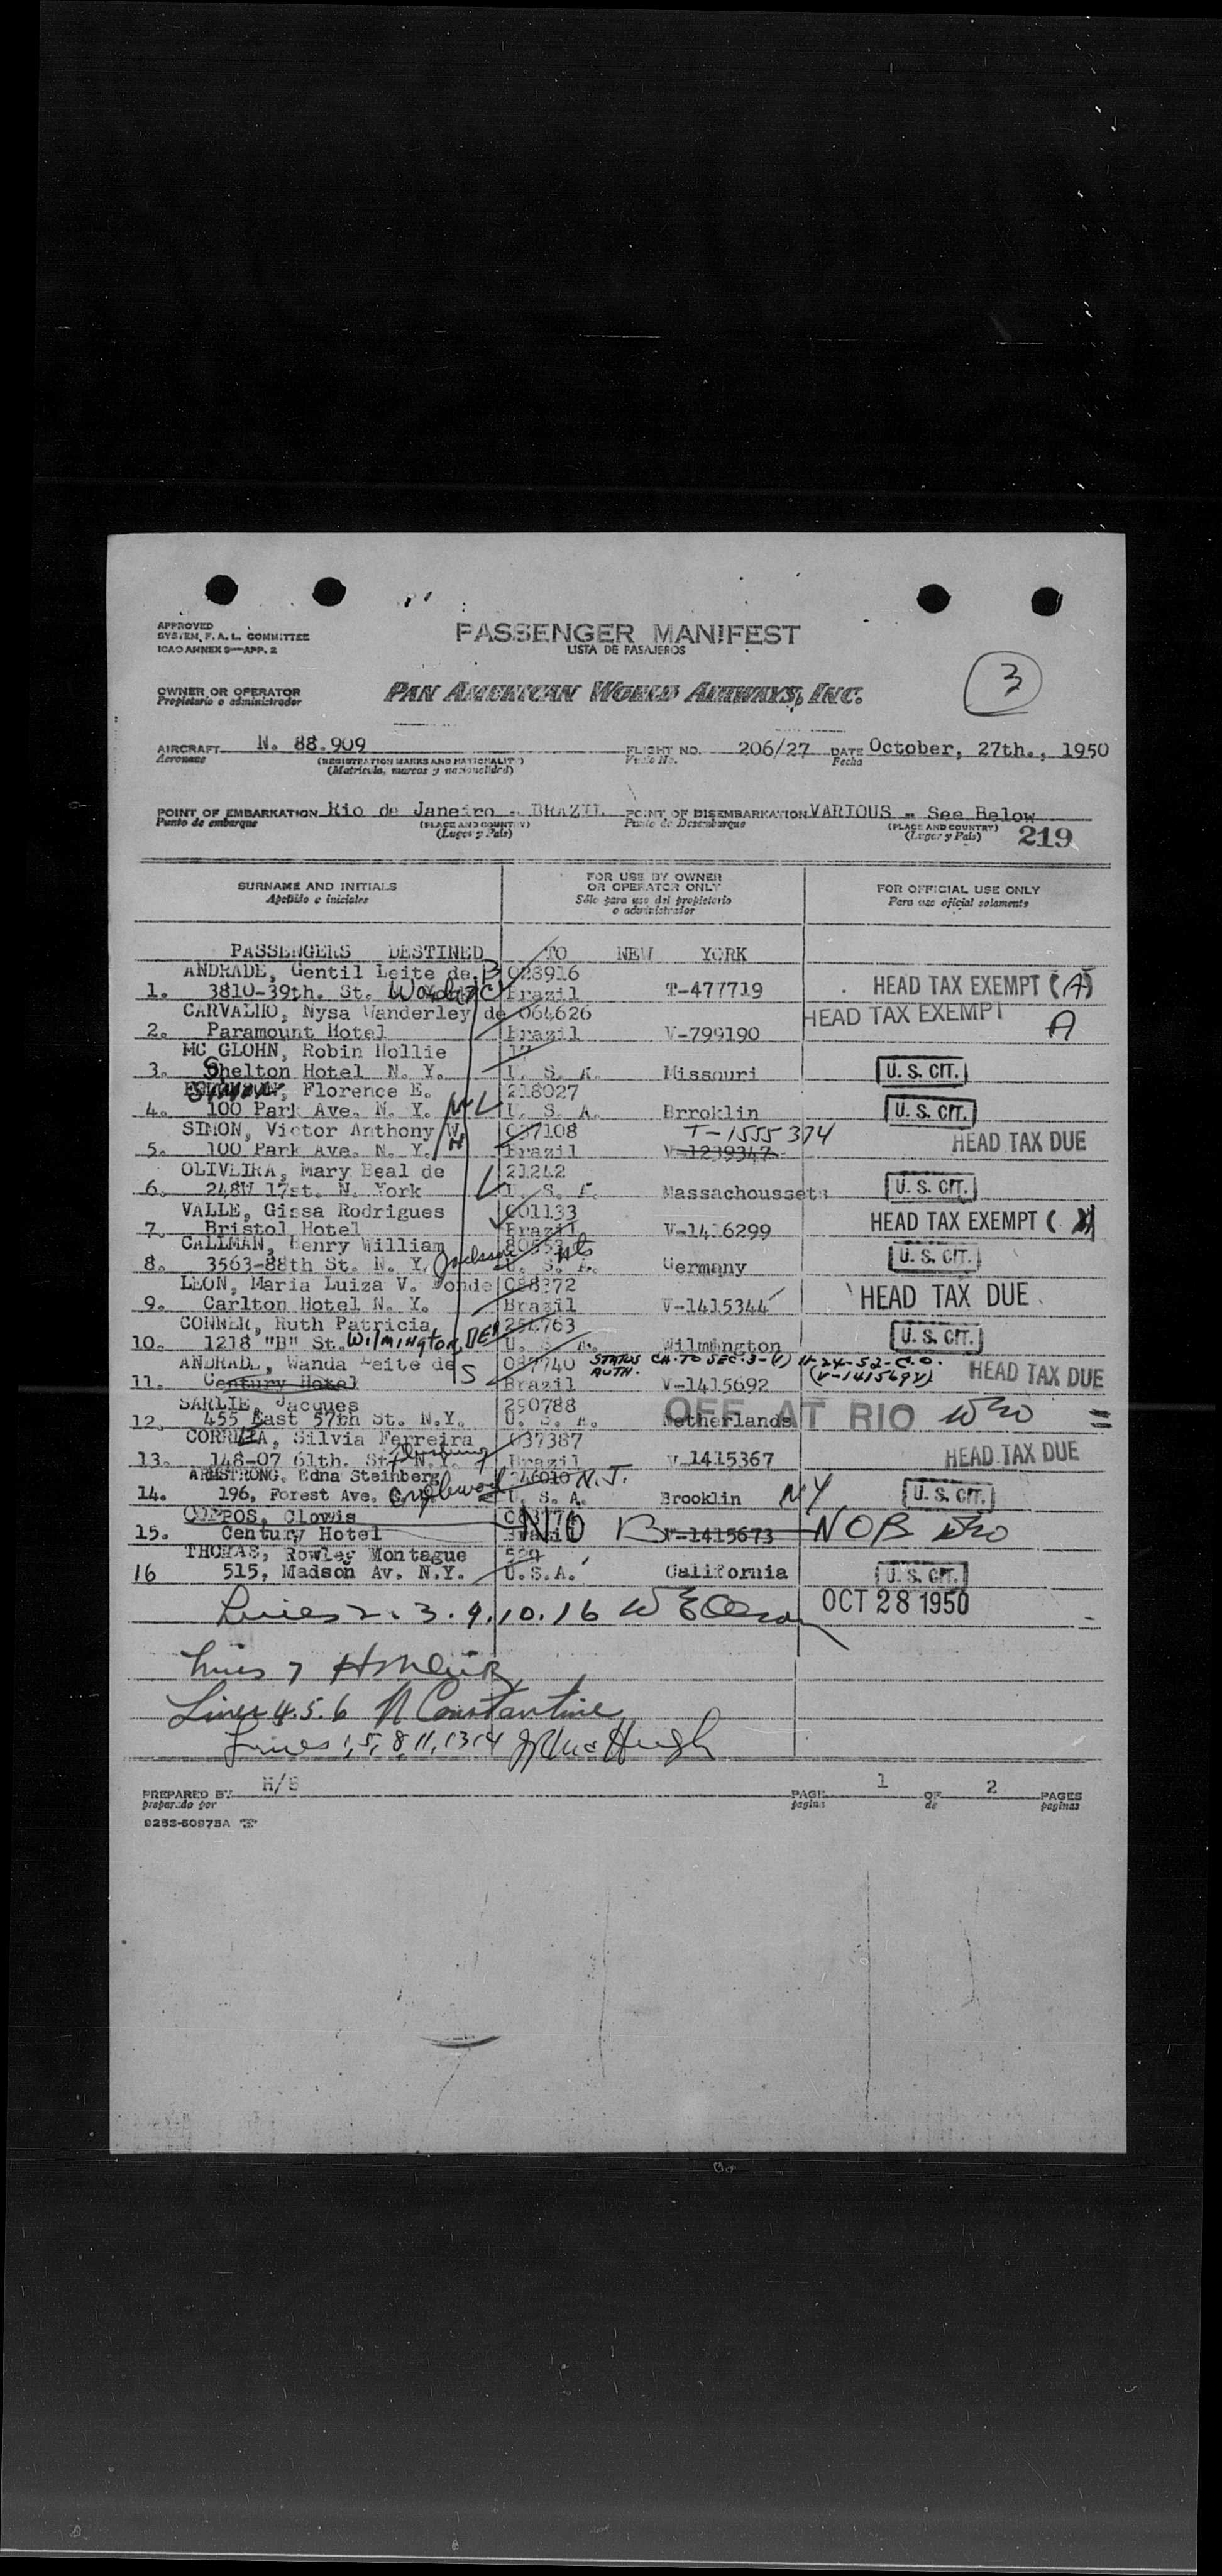 APPROVED
SYSTEM, F. A. L. COMMITTEE
ICAO ANNEX 9—APP. 2
PASSENGER MANIFEST
LISTA DE PASAJEROS
3
OWNER OR OPERATOR
Propietario o administrador
PAN AMERICAN WORLD AIRWAYS, INC.
AIRCRAFT N. 88.909 FLIGHT NO. 206/27 DATE October, 27th., 1950
Aeronave (REGISTRATION MARKS AND NATIONALITY) Vuelo No. Fecha
(Matricula, marcas y nacionalidad)
POINT OF EMBARKATION Rio de Janeiro - BRAZIL POINT OF DISEMBARKATION VARIOUS - See Below
Punto de embarque (PLACE AND COUNTRY) Punto de Desembarque (PLACE AND COUNTRY)
(Lugar y Pais) (Lugar y Pais) 219
SURNAME AND INITIALS FOR USE BY OWNER OR OPERATOR ONLY FOR OFFICIAL USE ONLY
Apellido e iniciales Sólo para uso del propietario o administrador Para uso oficial solamente
PASSENGERS DESTINED TO NEW YORK
ANDRADE, Gentil Leite de B 028916
1. 3810-39th. St. Brazil T-477719 HEAD TAX EXEMPT (A)
CARVALHO, Nysa Wanderley de 064626 HEAD TAX EXEMPT
2. Paramount Hotel Brazil V-799190 A
MC GLOHN, Robin Hollie 17
3. Shelton Hotel N. Y. U. S. A. Missouri U. S. CIT.
Florence E. 218027
4. 100 Park Ave. N. Y. U. S. A. Brroklin U. S. CIT.
SIMON, Victor Anthony 037108 T-1555374
5. 100 Park Ave. N. Y. Brazil V-1239347 HEAD TAX DUE
OLIVEIRA, Mary Beal de 21242
6. 248W 17st. N. York U. S. A. Massachoussets U. S. CIT.
VALLE, Gissa Rodrigues 001133
7. Bristol Hotel Brazil V-1416299 HEAD TAX EXEMPT
CALLMAN, Henry William
8. 3563-88th St. N. Y. Jackson Hts U. S. A. Germany U. S. CIT.
LEON, Maria Luiza V. Ponde 088372
9. Carlton Hotel N. Y. Brazil V-1415344 HEAD TAX DUE
CONNER, Ruth Patricia
10. 1218 "B" St. WILMINGTON, DEL U. S. A. Wilmington U. S. CIT.
ANDRADE, Wanda Leite de S STATUS CH. TO SEC. 3-(1) 11-24-52-C.O.
AUTH. (V-1415692)
11. Century Hotel Brazil V-1415692 HEAD TAX DUE
SARLIE, Jacques 290788
12. 455 East 57th St. N.Y. U. S. A. Netherlands OFF AT RIO
CORREIA, Silvia Ferreira 037387
13. 148-07 61th. St. N.Y. Flushing Brazil V-1415367 HEAD TAX DUE
ARMSTRONG, Edna Steinberg
14. 196, Forest Ave. Englewood N.J. U. S. A. Brooklin NY U. S. CIT.
Clowis
15. Century Hotel Brazil NO B V-1415673 NOB
THOMAS, Rowley Montague
16 515, Madson Av. N.Y. U.S.A. California U. S. CIT.
Lines 2. 3. 9. 10. 16 OCT 28 1950
Lines 7
Lines 4. 5. 6 N Constantine
Lines 1, 5, 8, 11, 13 14
PREPARED BY H/S PAGE 1 OF 2 PAGES
preparado por pagina de paginas
9253-50975A